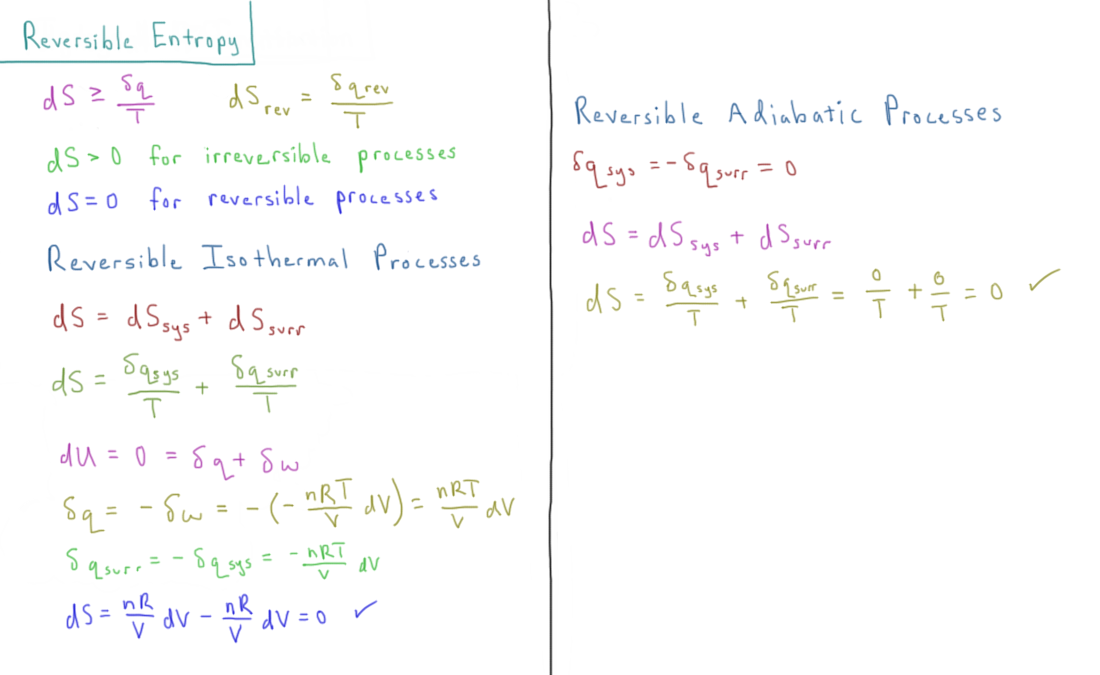 Reversible Entropy
dS ≥ δq/T    dS_rev = δq_rev/T
dS > 0 for irreversible processes
dS = 0 for reversible processes
Reversible Isothermal Processes
dS = dS_sys + dS_surr
dS = δq_sys/T + δq_surr/T
dU = 0 = δq + δw
δq = - δw = - (- nRT/V dV) = nRT/V dV
δq_surr = - δq_sys = - nRT/V dV
dS = nR/V dV - nR/V dV = 0 ✓
Reversible Adiabatic Processes
δq_sys = - δq_surr = 0
dS = dS_sys + dS_surr
dS = δq_sys/T + δq_surr/T = 0/T + 0/T = 0 ✓